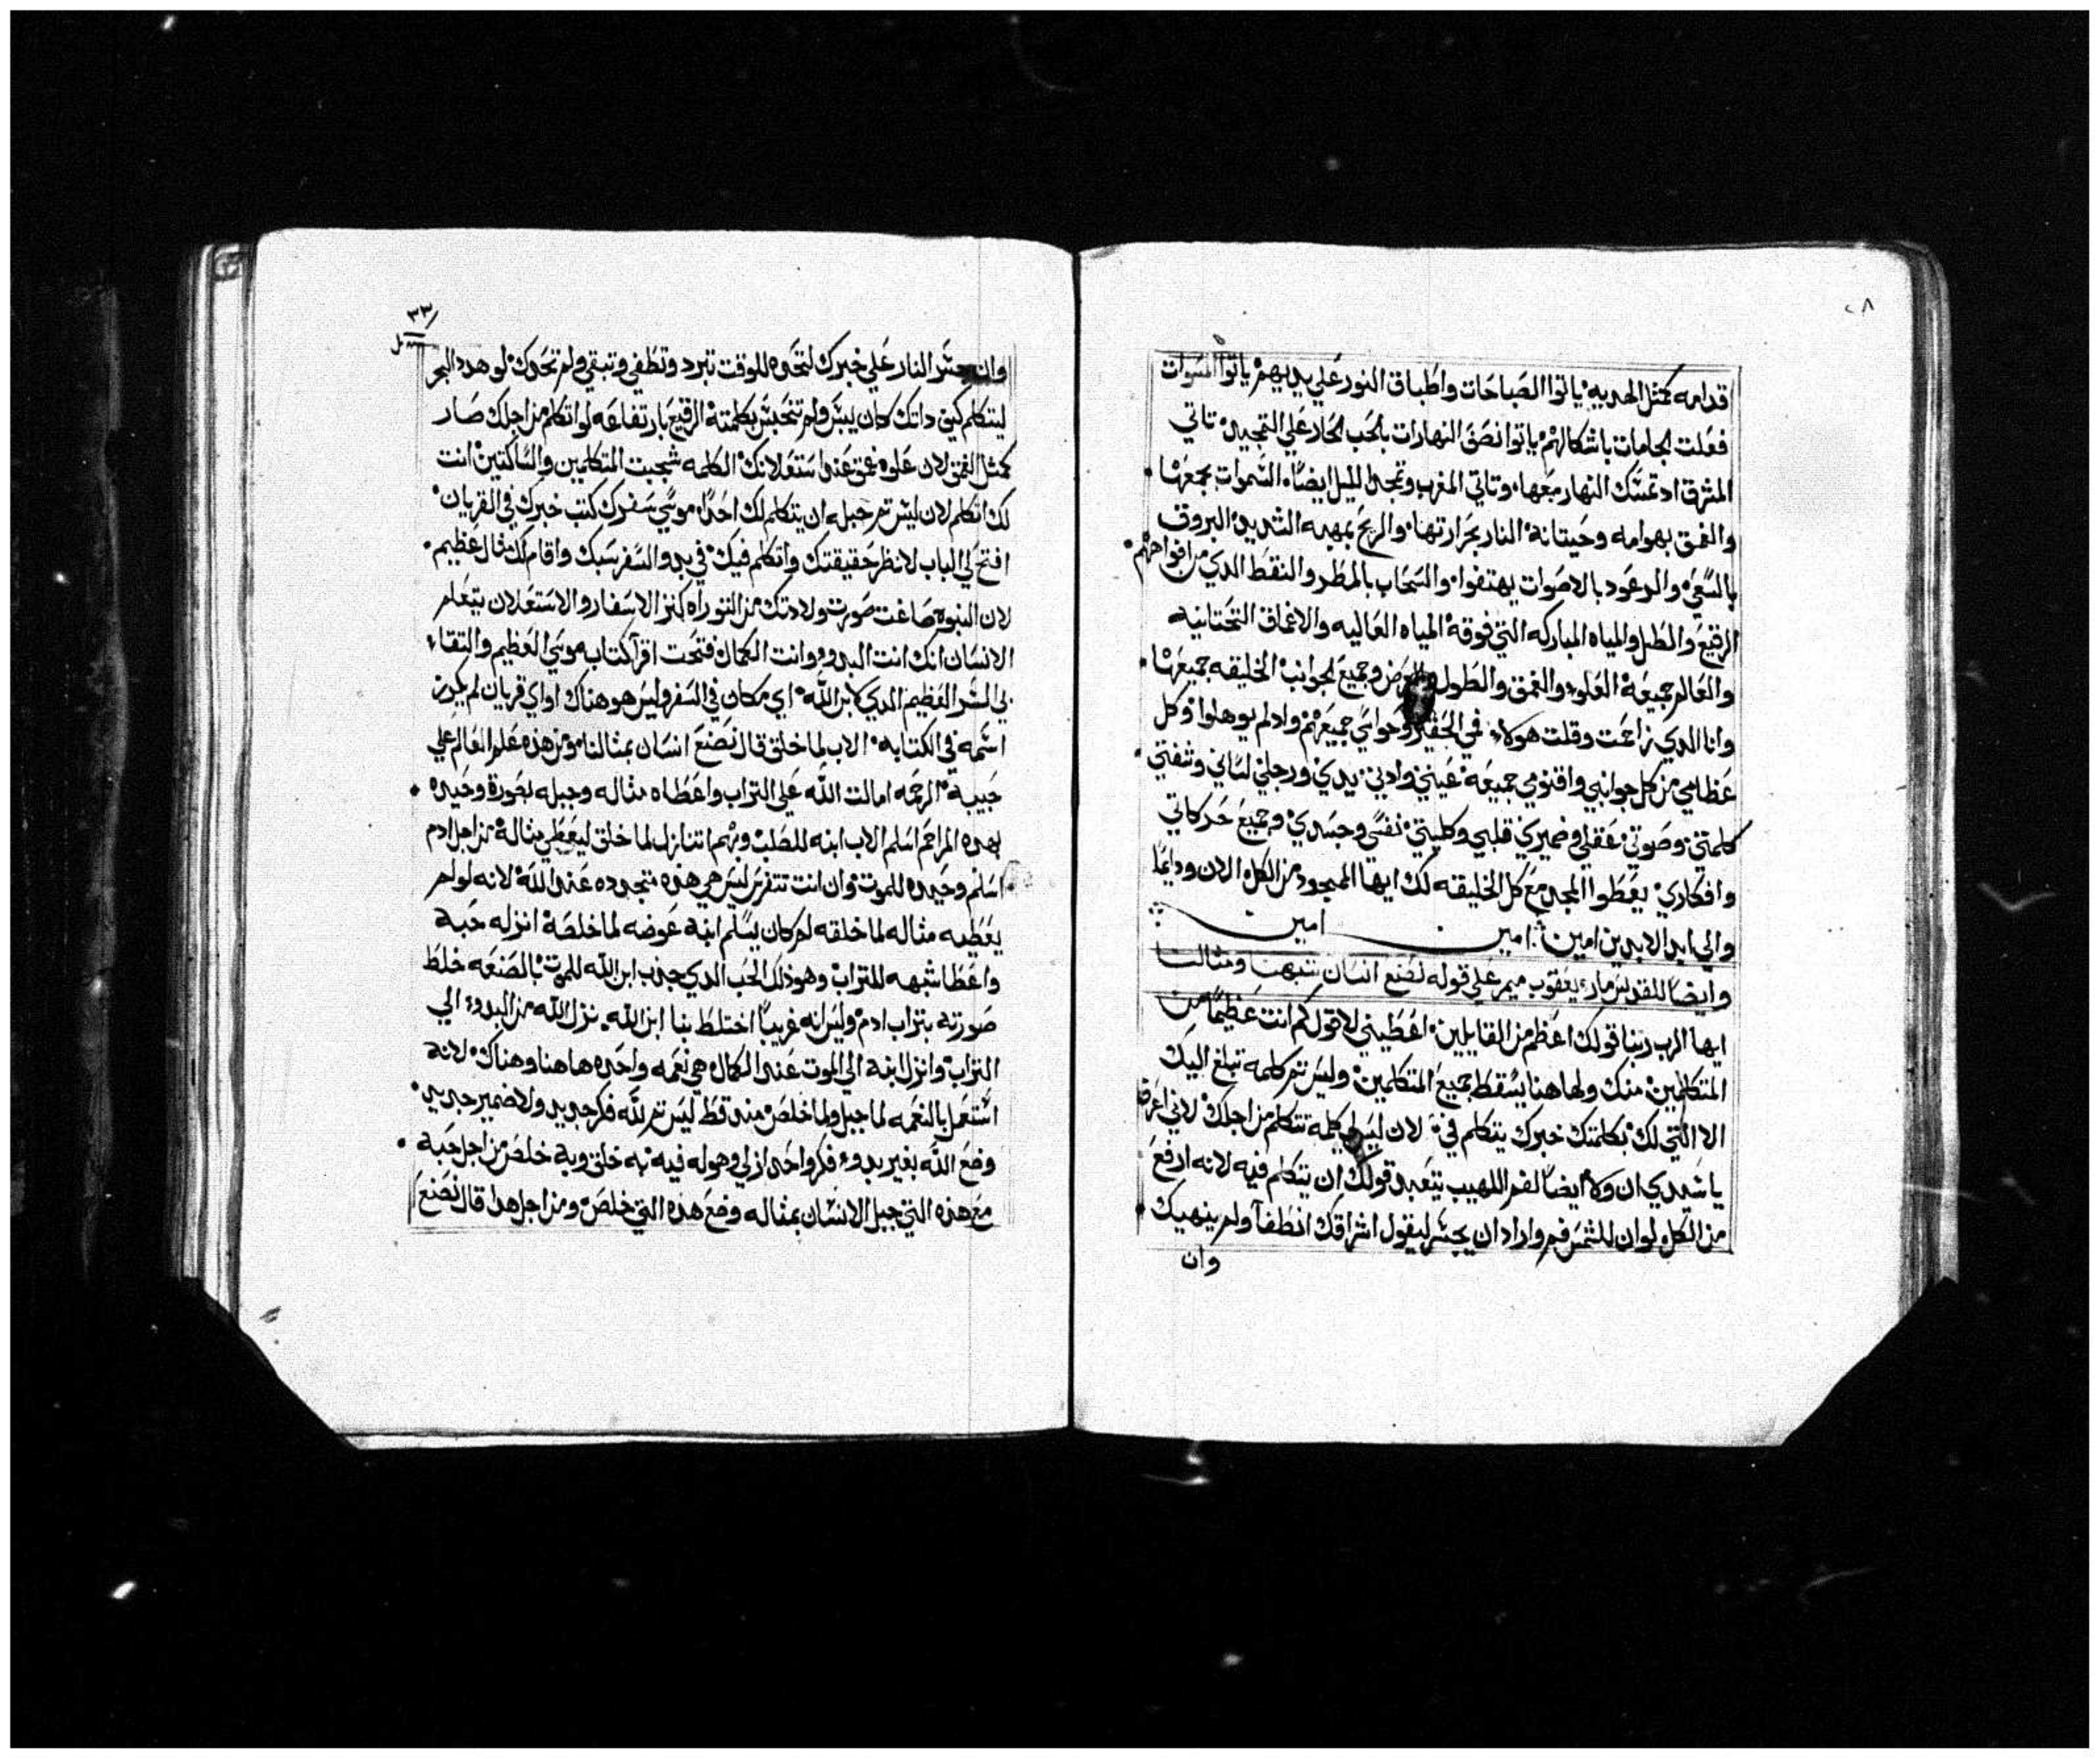 ٢٨
قدامه كمثل الهديه ياتوا الصباحات واطباق النور علي يديهم ياتوا المسوات
فعلت لجامات باشكالهم ياتوا نصف النهارات بالحب الحار علي التمجيد تاتي
المشرق اد تمسك النهار معها وتاتي المغرب وتمجد الليل ايضاً السموات بجمعها
والغمق بهوامه وحيتانه النار بحرارتها والريح بمهبه الشديد البروق
بالسعي والرعود بالاصوات يهتفوا والسحاب بالمطر والنقط الدي من افواههم
الرقيع والطل والمياه المباركه التي فوقه المياه العاليه والاغماق التحتانيه
والعالم جميعه العلوء والغمق والطول والعرض وجميع لجوانب الخليقه جميعها
وانا الدي زاحمت وقلت هولاء فمي الحقير وحواسي جميعهم واد لم يوهلوا وكل
عظامي من كل جوانبي واقنومي جميعه عيني وادني يدي ورجلي لساني وشفتي
كلمتي وصوتي عقلي وضميري قلبي وكليتي نفسي وجسدي وجميع حركاتي
وافكاري يعطوا المجد مع كل الخليقه لك ايها المسجود من الكل الان ودايما
والي ابد الابدين امين امين امين
وايضاً للقديس مار يعقوب ميمر علي قوله نصنع انسان شبهنا ومثالنا
ايها الرب ربنا قولك اعظم من القايلين اعطيني لاقول كم انت عظيماً من
المتكلمين منك ولهاهنا يسقط جميع المتكلمين وليس تم كلمه تبلغ اليك
الا التي لك بكلمتك خبرك يتكلم في لان ليس لي كلمه تتكلم من اجلك لاني اعرف
يا سيدي ان ولا ايضاً لفم اللهيب يتعبد قولك ان يتكلم فيه لانه ارفع
من الكل لو ان للشمس فم واراد ان يجسر ليقول اشراقك انطفا ولم ينهيك
وان
٣٣
وان جسر النار علي خبرك لتحده للوقت تبرد وتطفي وتبقي ولم تحدك لو هدد البحر
ليتكلم كيف داتك كان يبس ولم تنحبس بكلمته الرقيع بارتفاعه لو اتكلم من اجلك صار
كمثل الغمق لان علوه غمق عندا ستعلانك الكلمه شجبت المتكلمين والساكتين انت
لك اتكلم لان ليس تم حبله ان يتكلم لك احدا موسي سفرك كتب خبرك في القريان
افتح لي الباب لانظر حقيقتك واتكلم فيك في بدو السفر سبك واقام لك تمال عظيم
لان النبوه صاغت صورت ولادتك من التوراه كنز الاسفار والاستعلان يتعلم
الانسان انك انت البدوء وانت الكمال فتحت اقرا كتابه موسي العظيم والتقاء
بي السر العظيم الدي لابن الله اي مكان في السفر وليس هو هناك او اي قريان لم يكرز
اسمه في الكتابه الاب لما خلق قال نصنع انسان بمثالنا ومن هذه علم العالم علي
حبيبه الرحمه امالت الله علي التراب واعطاه مثاله وجبله بصورة وحيده
بهده المراحم اسلم الاب ابنه للصلب وبهم اتنازل لما خلق ليعطي مثاله من اجل ادم
اسلم وحيده للموت وان انت تتفرس ليس هي هذه متجدده عند الله لانه لو لم
يعطيه مثاله لما خلقه لم كان يسلم ابنه عوضه لما خلصه انزله حبه
واعطا شبهه للتراب وهو ذلك الحب الدي جذب ابن الله للموت بالصنعه خلط
صورته بتراب ادم وليس انه غريباً اختلط بنا ابن الله نزل الله من البدوء الي
التراب وانزل ابنه الي الموت عند الكمال هي نعمه واحده هاهنا وهناك لانه
استعمل بالنعمه لما جبل ولما خلص مند قط ليس تم لله فكر جديد ولا ضمير جديد
وضع الله بغير بدوء فكر واحد ازلي وهو له فيه به خلق وبه خلص من اجل حبه
مع هذه التي جبل الانسان بمثاله وضع هذه التي خلص ومن اجل هدا قال نصنع